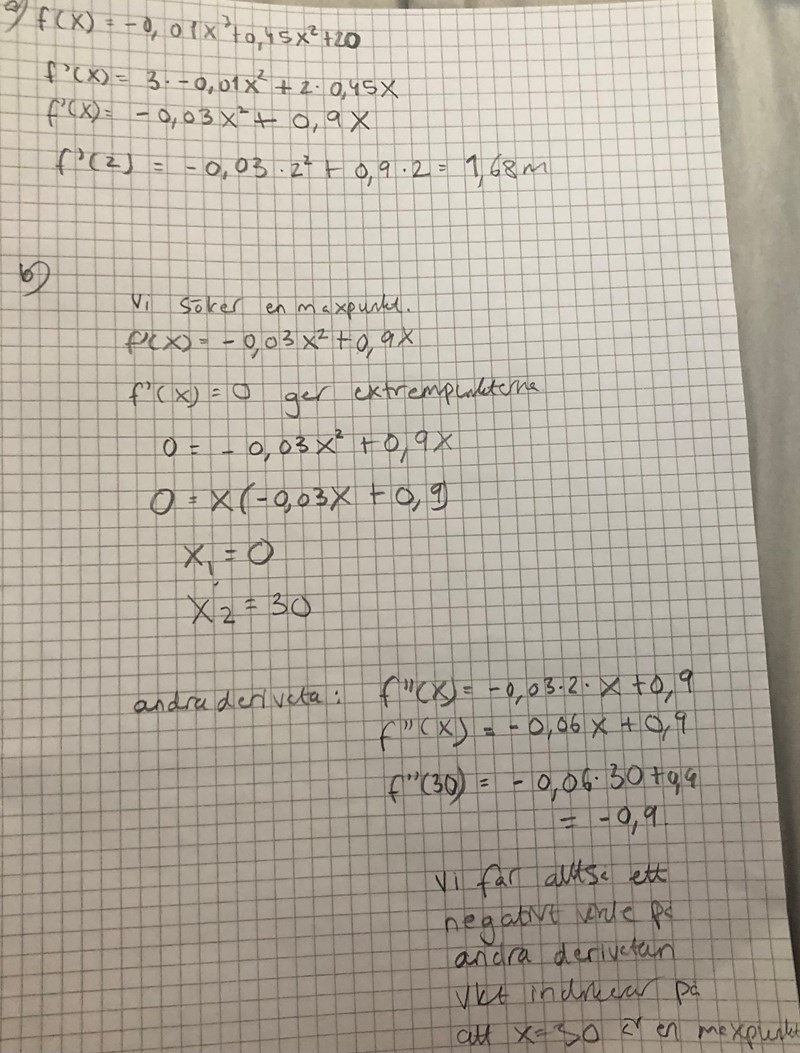 a) f(x) = -0,01x³+0,45x²+20
f'(x) = 3·-0,01x² + 2·0,45x
f'(x) = -0,03x² + 0,9x
f'(2) = -0,03·2² + 0,9·2 = 1,68m
b)
Vi söker en maxpunkt.
f'(x) = -0,03x²+0,9x
f'(x) = 0 ger extrempunkterna
0 = -0,03x² + 0,9x
0 = x(-0,03x + 0,9)
x₁ = 0
x₂ = 30
andra derivata: f''(x) = -0,03·2·x+0,9
f''(x) = -0,06x+0,9
f''(30) = -0,06·30+0,9
= -0,9.
Vi får alltså ett
negativt värde på
andra derivatan
vkt indikerar på
att x=30 är en maxpunkt